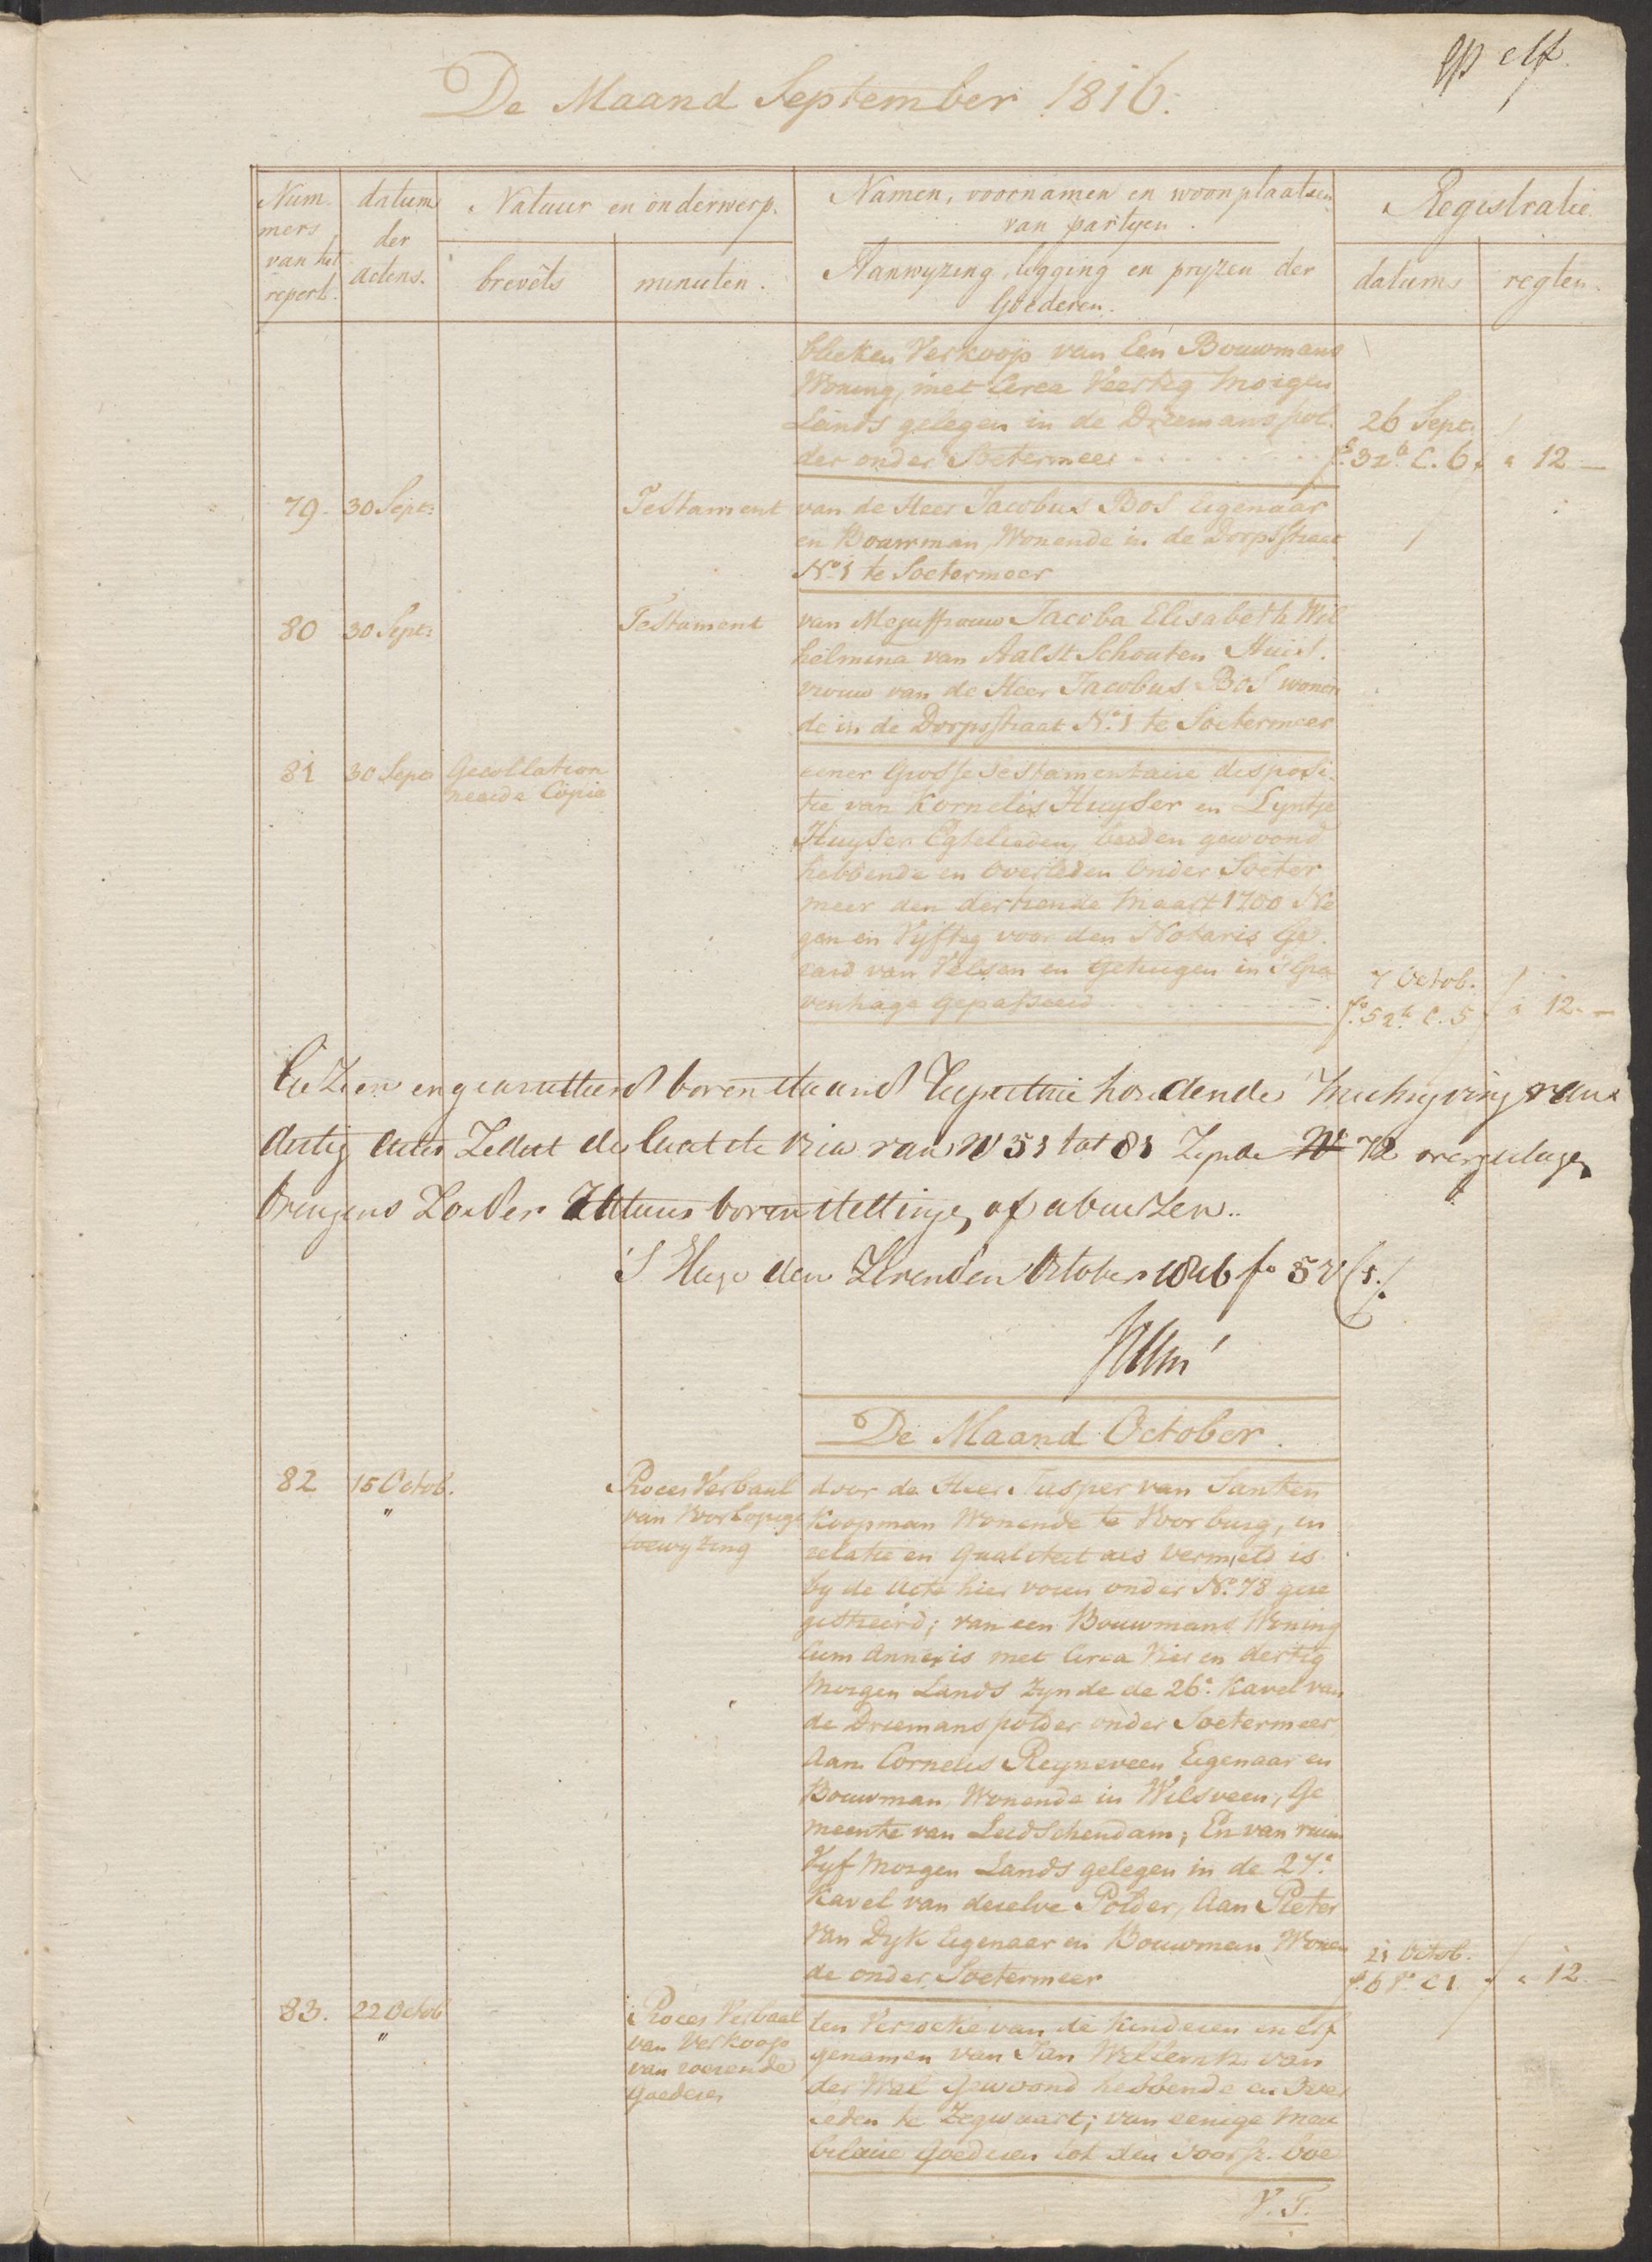 elf
De Maand September 1816.
Num
mers
van het
repert.
datum
der
actens.
Natuur en onderwerp.
brevêts
minuten.
Namen, voornamen en woonplaatsen
van partyen.
Aanwyzing, ligging en pryzen der
Goederen.
Registratie
datums
regten.
blieken Verkoop van Een Bouwmans
Woning, met Circa Veertig Morgen
Lands gelegen in de Driemanspol
der onder Soetermeer
26 Sept.
f.o 32 C. 6 " 12 —
79. 30 Sept: Testament van de Heer Jacobus Bos Eigenaar
en Bouwman, Wonende in de Dorpsstraat
No. 1 te Soetermeer
80 30 Sept: Testament van Mejuffrouw Jacoba Elisabeth Wil
helmina van Aalst Schouten Huis.
vrouw van de Heer Jacobus Bos wonen
de in de Dorpsstraat No. 1 te Soetermeer
81 30 Sept: Gecollation
neerde Copie
eener Grosse Testamentaire disposi-
tie van Kornelis Huyser en Lyntje
Huyser Egtelieden, beeden gewoond
hebbende en Overleden Onder Soeter
meer den dertiende Maart 1700 Ne
gen en Vyftig voor den Notaris Ge.
rard van Velsen en Getuigen in 'sGra
venhage Gepasseerd
7 Octob.
f.o 52 C. 5 " 12. —
Gezien en gearresteerd bovenstaand Repertoire houdende Inschryving van
dertig Actes Zedert de laatste Visa van No 51 tot 81 Zynde No 72 overgeslagen
Overigens Zonder tusschenstellingen of abuizen.
S Hage den Zevenden October 1816 fo 52
De Maand October.
82 15 Octob.
"
Proces Verbaal
van Voorlopige
toewyzing
door de Heer Jasper van Santen
Koopman Wonende te Voorburg, in
relatie en Qualiteit als Vermeld is
by de Acte hier voren onder No. 78 gere
gistreerd; van een Bouwmans Woning
Cum Annexis met Circa Vier en dertig
Morgen Lands Zynde de 26e. Kavel van
de Driemanspolder onder Soetermeer
Aan Cornelis Reyneveen Eigenaar en
Bouwman Wonende in Wilsveen, Ge
meente van Leidschendam; En van ruim
Vyf Morgen Lands gelegen in de 27e.
Kavel van deselve Polder, Aan Pieter
Van Dyk Eigenaar en Bouwman Wonen
de onder Soetermeer
21 Octob.
f.o 6 Vo. C 1. " 12. —
83. 22 Octob
"
Proces Verbaal
van Verkoop
van roerende
Goederen
ten Verzoeke van de Kinderen en erf
genamen van Jan Willemsz. van
der Wal Gewoond hebbende en Over
leden te Zegwaart; van eenige Meu
belaire Goederen tot den voorsz. boe
V. T.